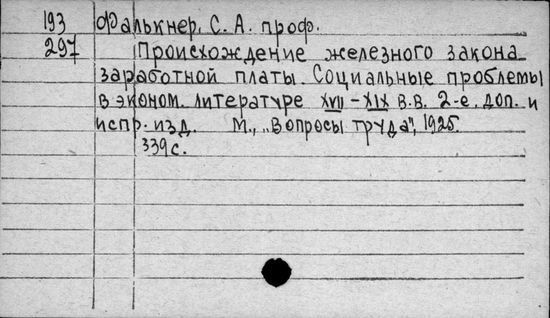 193 Фалькнер, С. А. проф.
297 Происхождение железного закона
заработной платы. Социальные проблемы
в эконом. литературе XVII – XIX в.в. 2-е. доп. и
испр. изд. М., „Вопросы труда", 1925.
339 с.